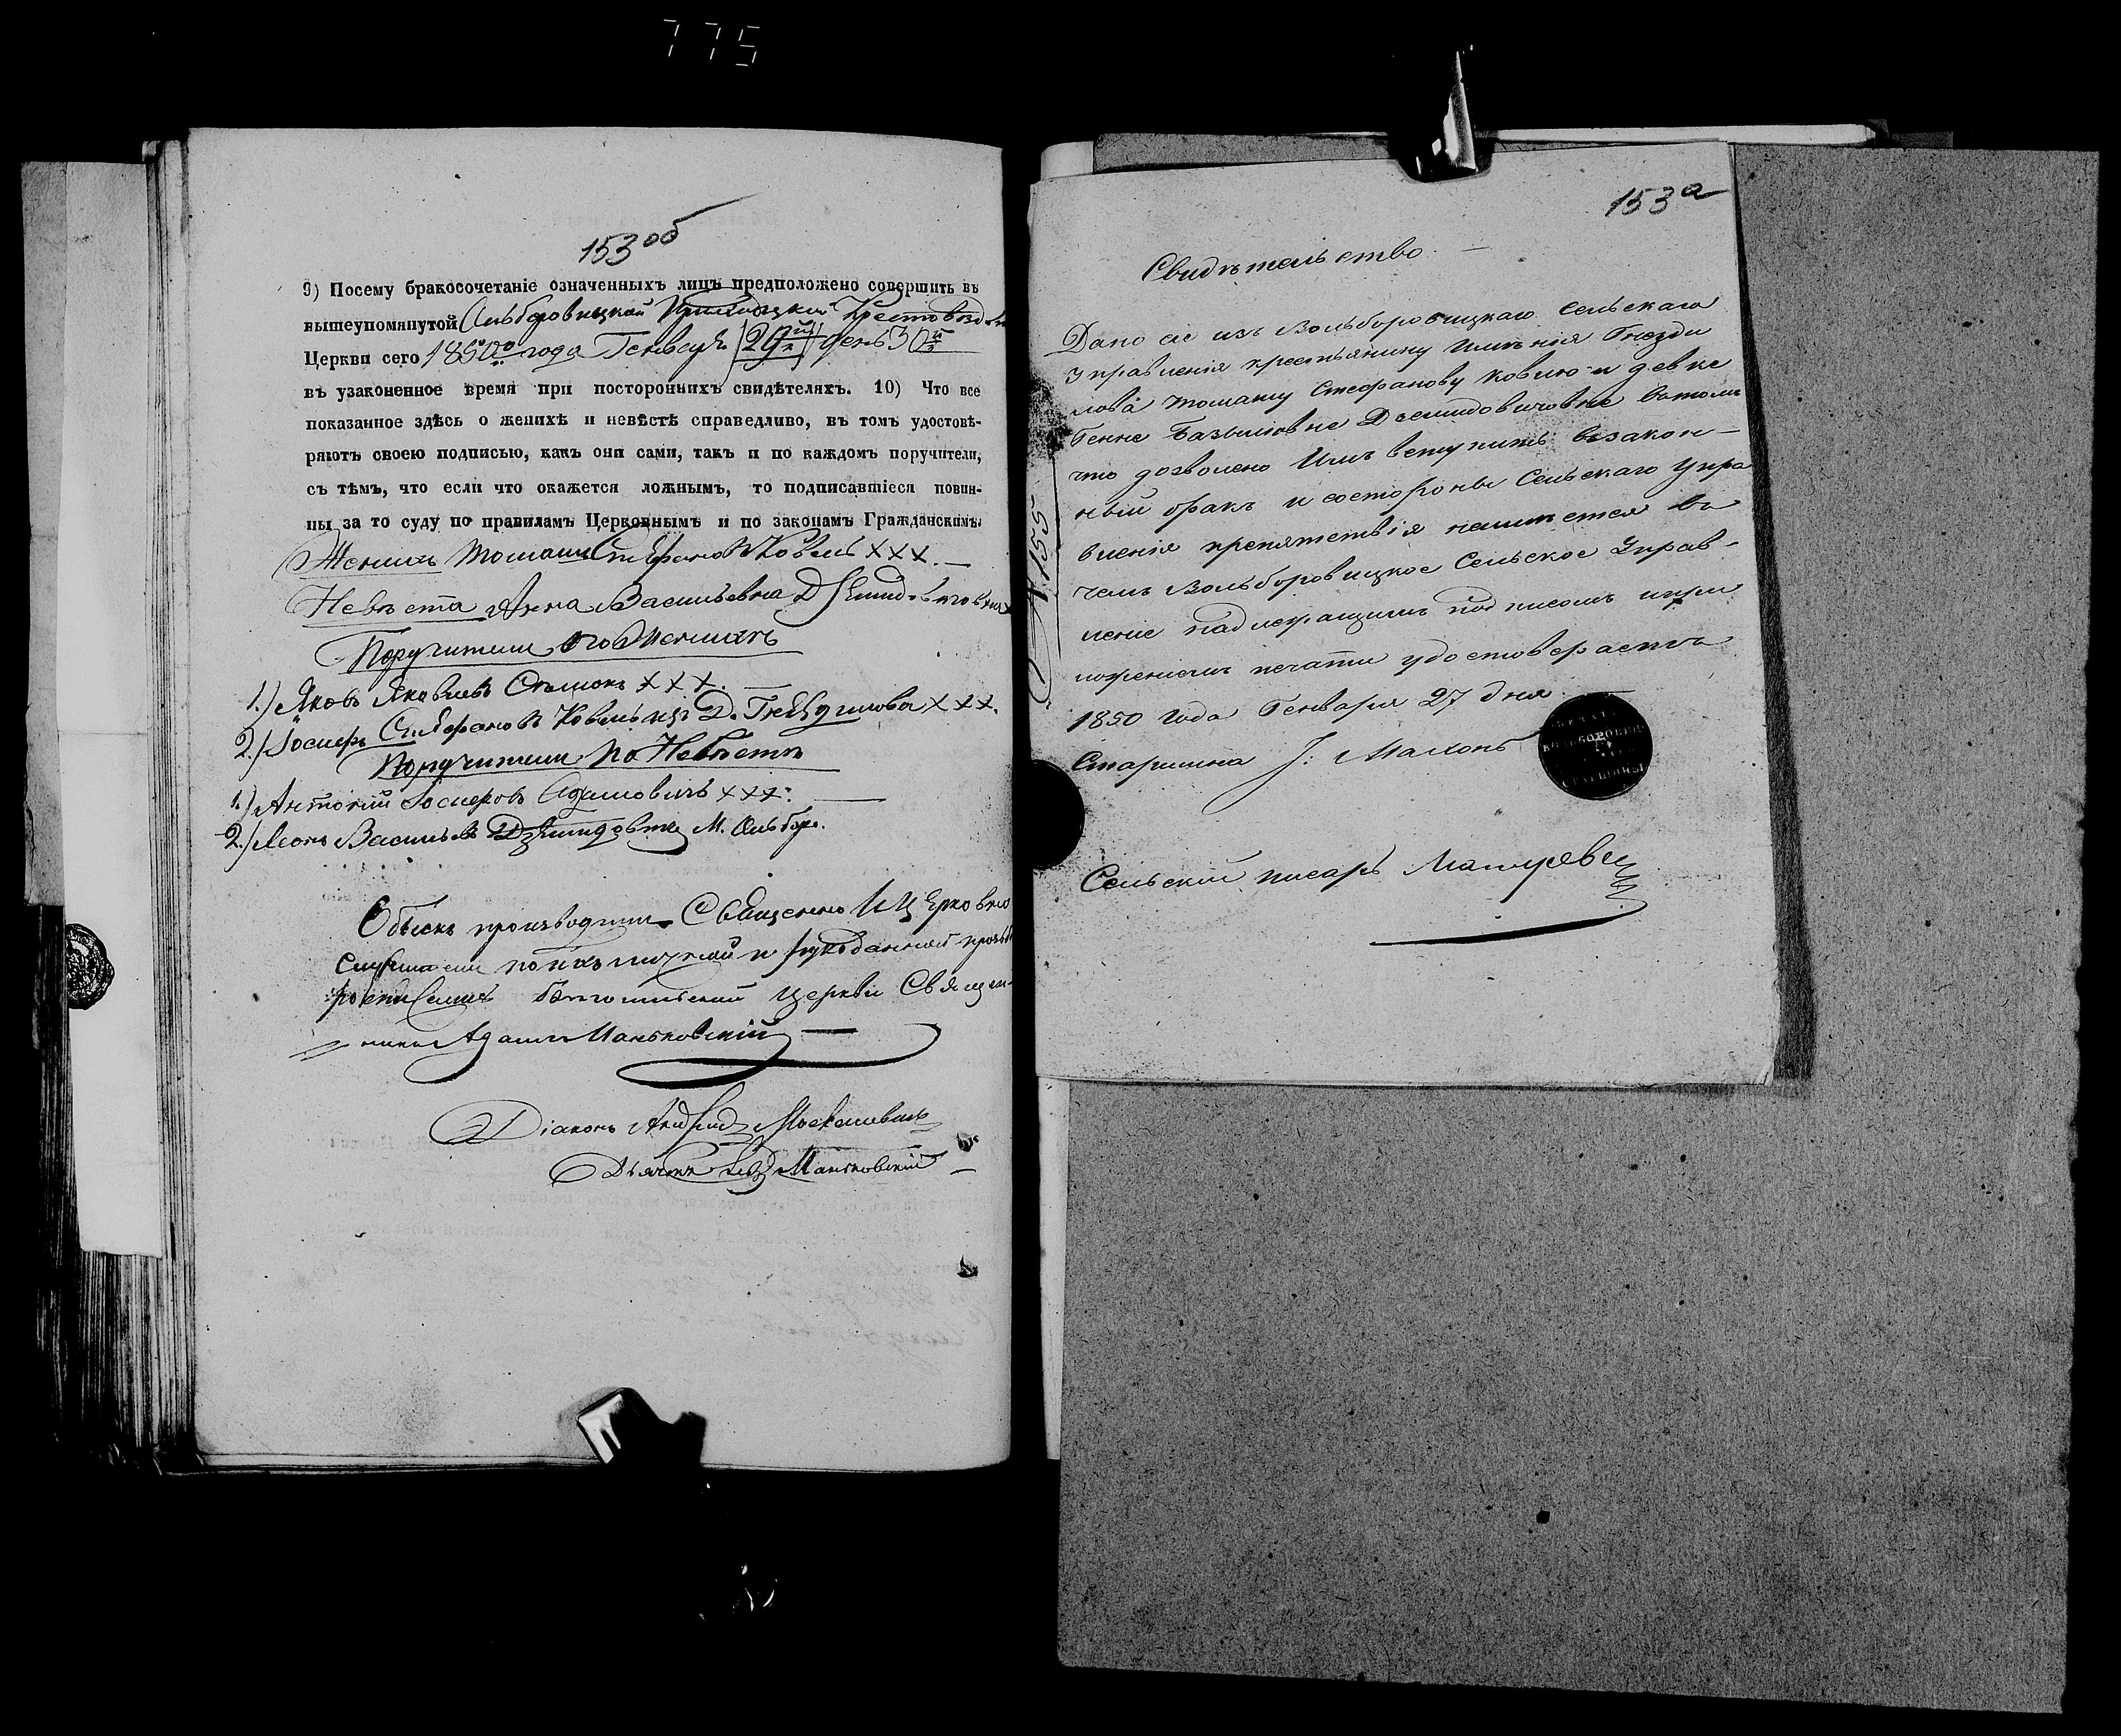 775
153 об
9) Посему бракосочетаніе означенныхъ лицъ предположено совершить въ
вышеупомянутой Ольборовицкой Крестовозд
Церкви сего 1850го года Генваря 29й день 30й
въ узаконенное время при постороннихъ свидѣтеляхъ. 10) Что все
показанное здѣсь о женихѣ и невѣстѣ справедливо, въ томъ удостовѣ-
ряютъ своею подписью, какъ они сами, такъ и по каждомъ поручители,
съ тѣмъ, что если что окажется ложнымъ, то подписавшіеся повин-
ны за то суду по правиламъ Церковнымъ и по законамъ Гражданскимъ.
Женихъ Томашъ Стефановъ Ковель ххх.
Невѣста Анна Васильевна Дземидовичовна
Поручители по Женихѣ
1.) Яковъ Яковлевъ ххх.
2.) Іосифъ Стефановъ Ковель изъ Д. Гнездилова ххх.
Поручители по Невѣстѣ
1.) Антоній Іосифовъ Адамовичъ ххх.
2.) Леонъ Васильевъ М. Ольбор.
Обыскъ производили Священно и Церковно
служители
церкви Священ-
никъ Адамъ Маньковскій
Діаконъ Андрей
Дьячокъ Маньковскій
153а
Свидѣтельство
Дано сіе изъ Вольборовицкаго Сельскаго
Управленія крестьянину имѣнія Гнезди
лова Томашу Стефанову Ковелю и девке
Генне Базылювне Дземидовичовне вътомъ
что дозволено имъ вступить взакон-
ный бракъ и состороны Сельскаго Упра
вленія препятствія неимѣется въ
чемъ Вольборовицкое Сельское Управ-
леніе надлежащимъ подписомъ ипри
ложеніемъ печати удостоверяетъ
1850 года Генваря 27 дня
Старшина І: Махонь
Сельскій писарь
№ 155